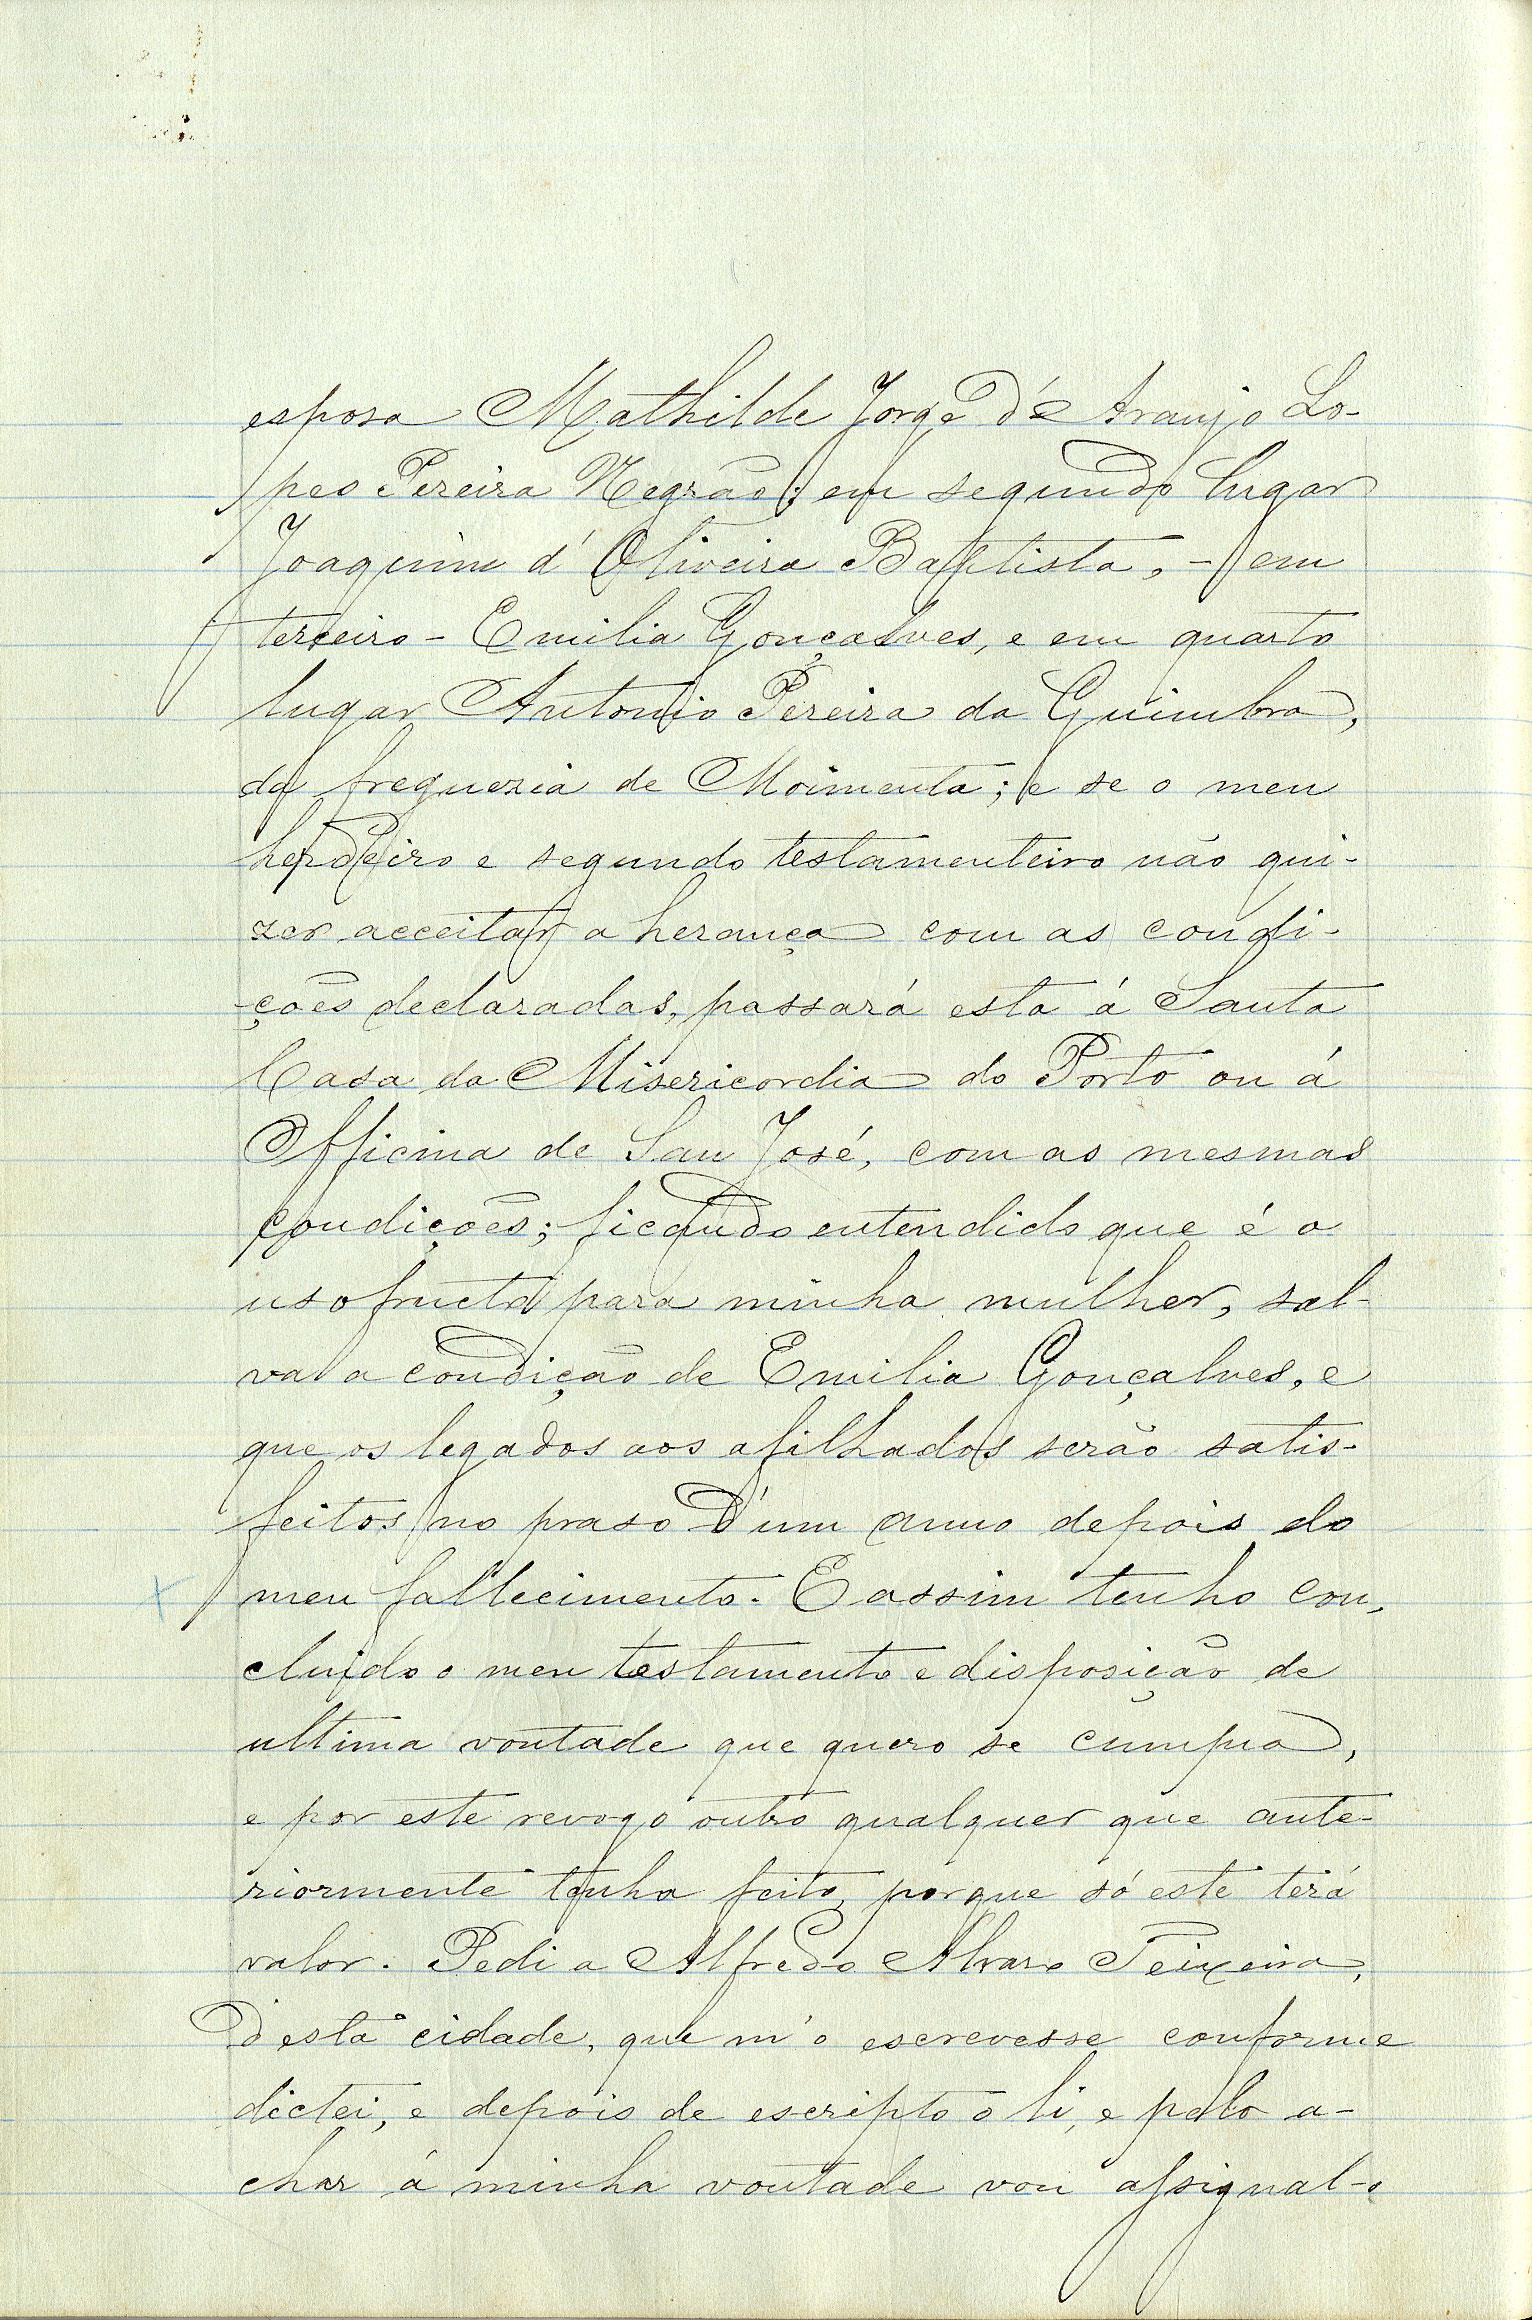 esposa Mathilde Jorge d'Araujo Lo-
pes Pereira Negrão; em segundo lugar
Joaquim d'Oliveira Baptista, - em
terceiro - Emilia Gonçalves, e em quarto
lugar Antonio Pereira da Guimbra,
da freguezia de Moimenta; e se o meu
herdeiro e segundo testamenteiro não qui-
zer acceitar a herança com as condi-
-ções declaradas, passará esta á Santa
Casa da Misericordia do Porto ou á
Officina de San José, com as mesmas
condições; ficando entendido que é o
usofructo para minha mulher, sal-
va a condição de Emilia Gonçalves, e
que os legados aos afilhados serão satis-
feitos no praso d'um anno depois do
meu fallecimento. E assim tenho con-
cluido o meu testamento e disposição de
ultima vontade que quero se cumpra,
e por este revogo outro qualquer que ante-
riormente tenha feito, porque só este terá
valor. Pedi a Alfredo Alvaro Teixeira,
d'esta cidade, que m'o escrevesse conforme
dictei, e depois de escripto o li, e pelo a-
char á minha vontade vou assignal-o